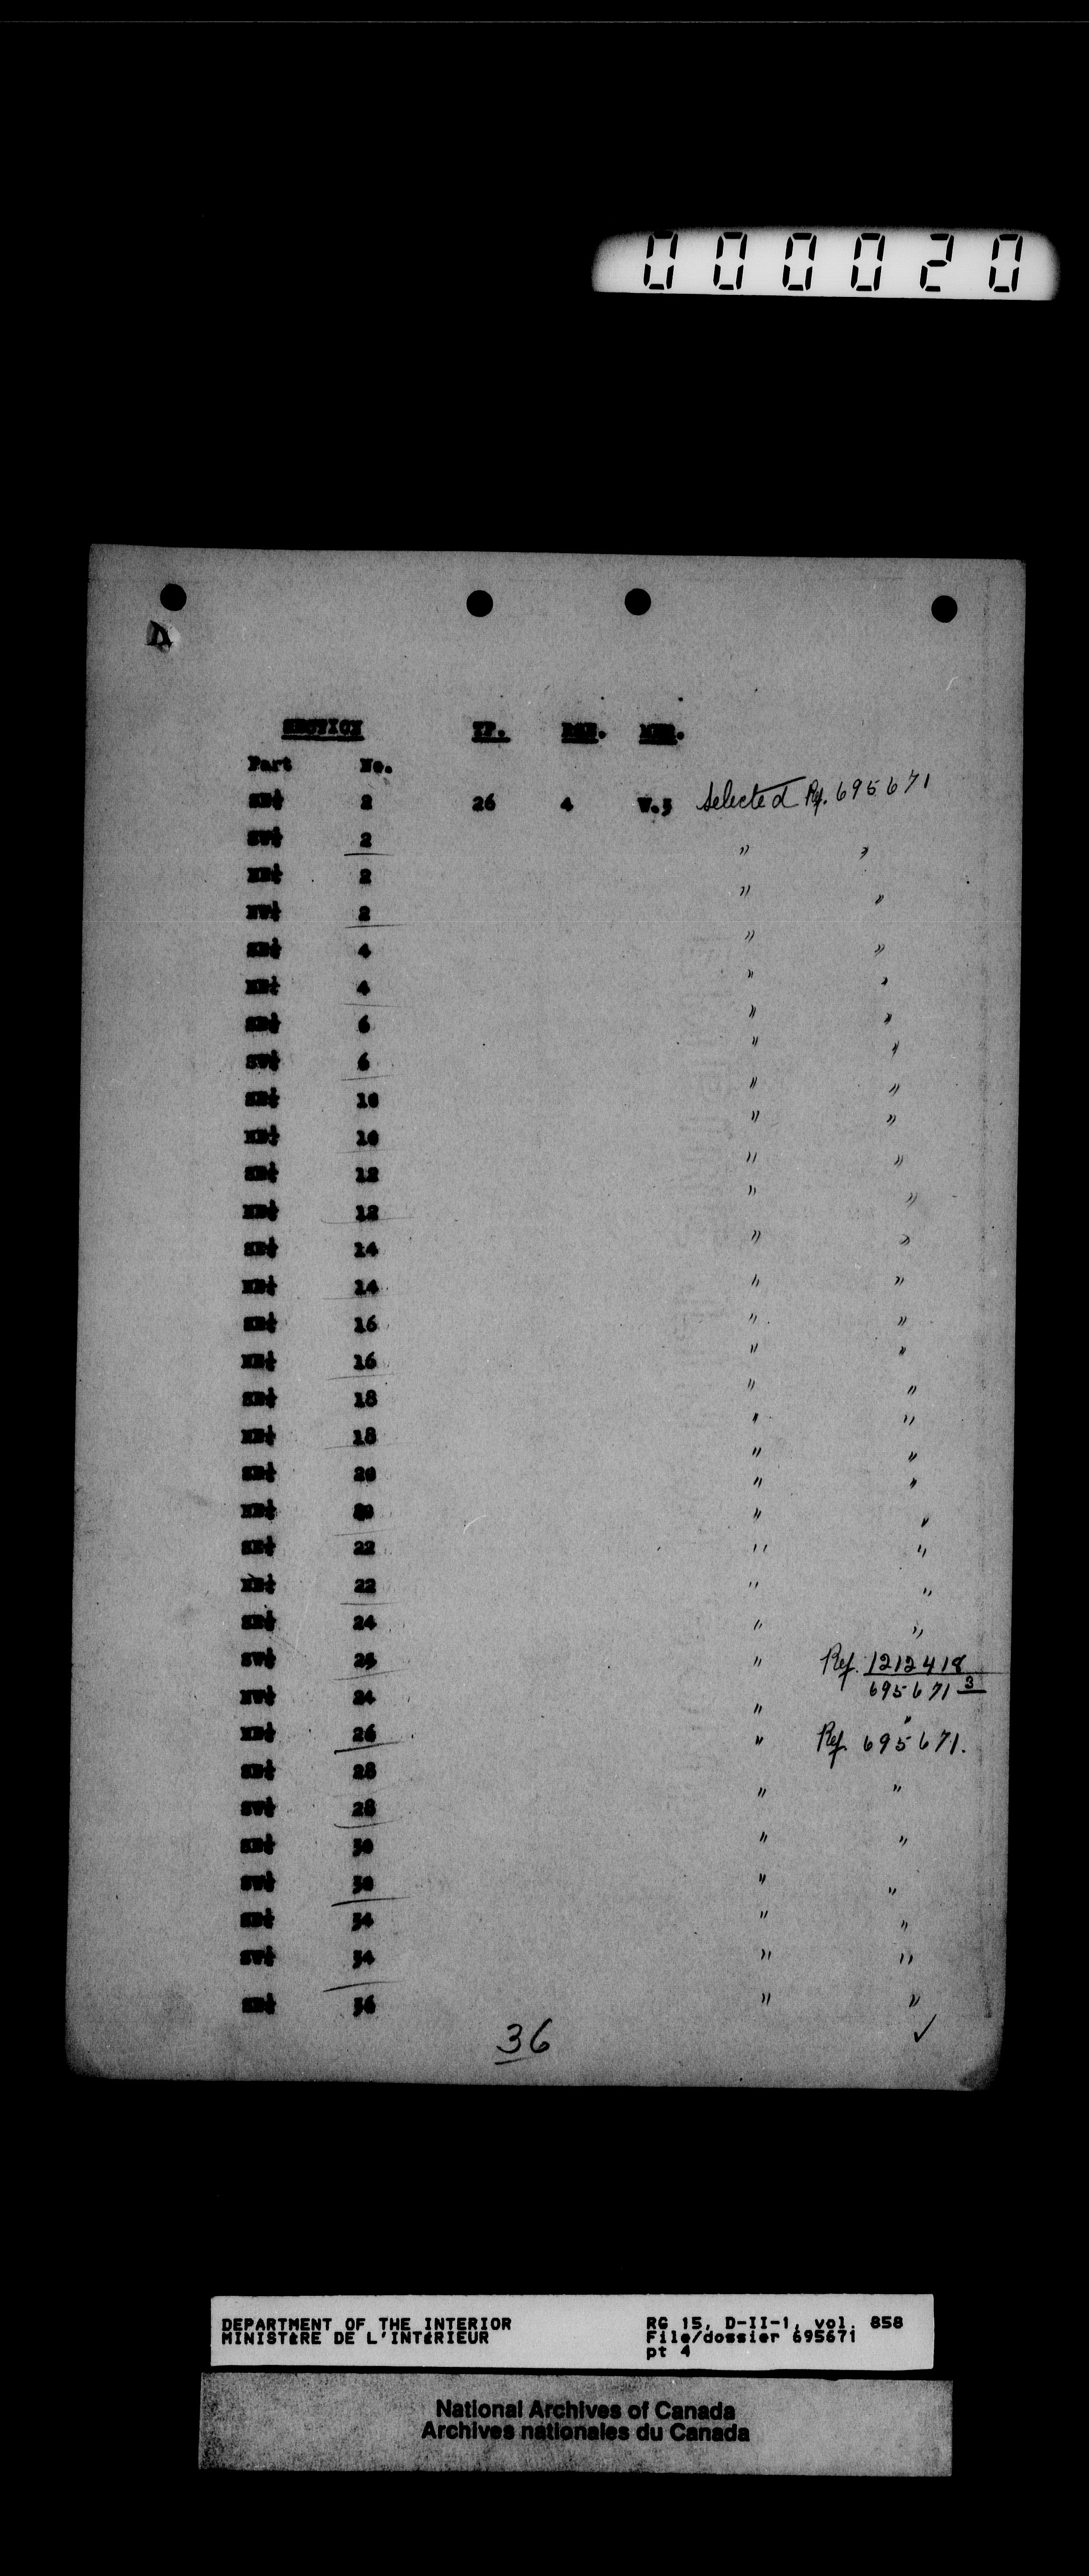 000020
D
SECTION TP. RGE. MER.
Part No.
SE¼ 2 26 4 W.5 Selected Ref. 695671
SW¼ 2 " "
NE¼ 2 " "
NW¼ 2 " "
SE¼ 4 " "
NE¼ 4 " "
SE¼ 6 " "
SW¼ 6 " "
SE¼ 10 " "
NE¼ 10 " "
SE¼ 12 " "
NE¼ 12 " "
SE¼ 14 " "
NE¼ 14 " "
SE¼ 16 " "
NE¼ 16 " "
SE¼ 18 " "
NE¼ 18 " "
SE¼ 20 " "
NE¼ 20 " "
SE¼ 22 " "
NE¼ 22 " "
SE¼ 24 " "
SW¼ " Ref. 1212418
NW¼ 24 " 695671 3
NE¼ 26 " Ref. 695671.
SE¼ 28 " "
SW¼ 28 " "
SE¼ 30 " "
SW¼ 30 " "
SE¼ 34 " "
SW¼ 34 " "
SE¼ 36 " "
36 ✓
DEPARTMENT OF THE INTERIOR RG 15, D-II-1, vol. 858
MINISTÈRE DE L'INTÉRIEUR File/dossier 695671
pt 4
National Archives of Canada
Archives nationales du Canada